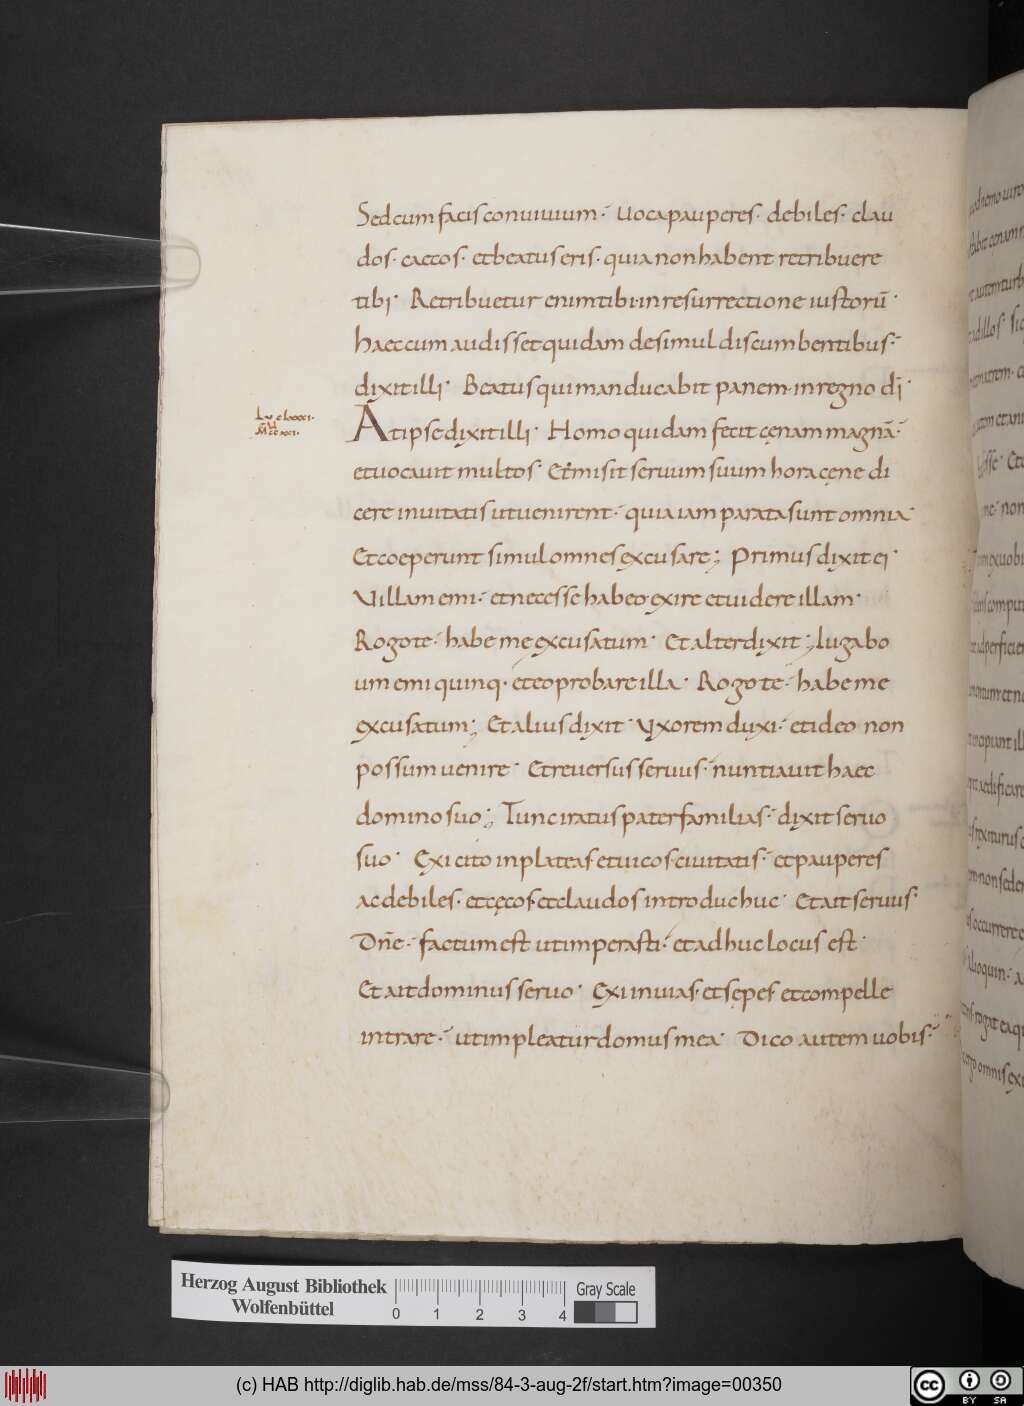 Sed cum facis conuiuium· uoca pauperes· debiles· clau
dos· caecos· et beatus eris· quia non habent retribuere
tibi· Retribuetur enim tibi in resurrectione iustorū·
haec cum audisset quidam de simul discumbentibus·
dixit illi· Beatus qui manducabit panem in regno dī·
At ipse dixit illi· Homo quidam fecit cęnam magnā·
et uocauit multos· Et misit seruum suum hora cęne di
cere inuitatis ut uenirent· quia iam parata sunt omnia·
Et coeperunt simul omnes excusare; Primus dixit ei·
Uillam emi· et necesse habeo exire et uidere illam·
Rogo te· habe me excusatum· Et alter dixit; Iuga bo
um emi quinq· et eo probare illa· Rogo te· habe me
excusatum; Et alius dixit· Uxorem duxi· et ideo non
possum uenire· Et reuersus seruus· nuntiauit haec
domino suo; Tunc iratus paterfamilias· dixit seruo
suo· Exi cito in plateas et uicos ciuitatis· et pauperes
ac debiles· et cęcos et claudos introduc huc· Et ait seruus·
Dn̄e· factum est ut imperasti· et adhuc locus est·
Et ait dominus seruo· Exi in uias et sepes et compelle
intrare· ut impleatur domus mea· Dico autem uobis·
Herzog August Bibliothek
Wolfenbüttel
0 1 2 3 4
Gray Scale
(c) HAB http://diglib.hab.de/mss/84-3-aug-2f/start.htm?image=00350
cc BY SA